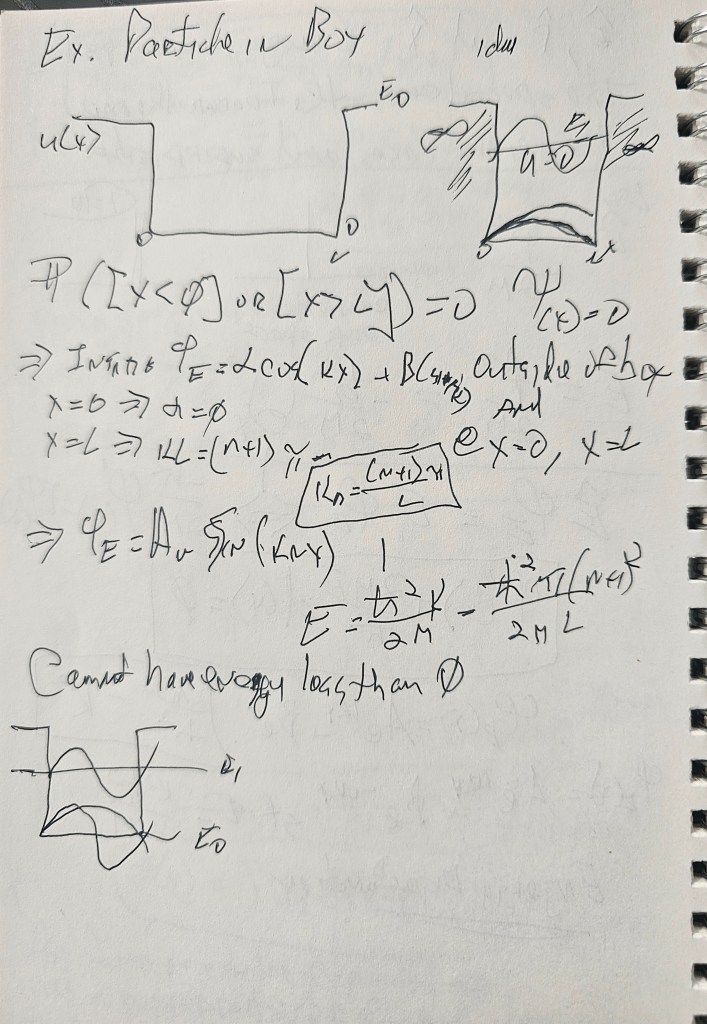 Ex. Particle in Box
E0
u(x)
∞ E1 ∞
u=0
0 0 L
0 L x
P([x<φ] or [x>L]) = 0 Ψ(x)=0
⇒ φE = α cos(kx) + B( outside of box
x=0 ⇒ α=φ And
x=L ⇒ kL=(n+1)π @ x=0, x=L
Kn = (n+1)π / L
⇒ φE = An Sin(knx)
E = ħ²k / 2M = ħ²π(n+1)² / 2M L
Cannot have energy less than φ
E1
E0